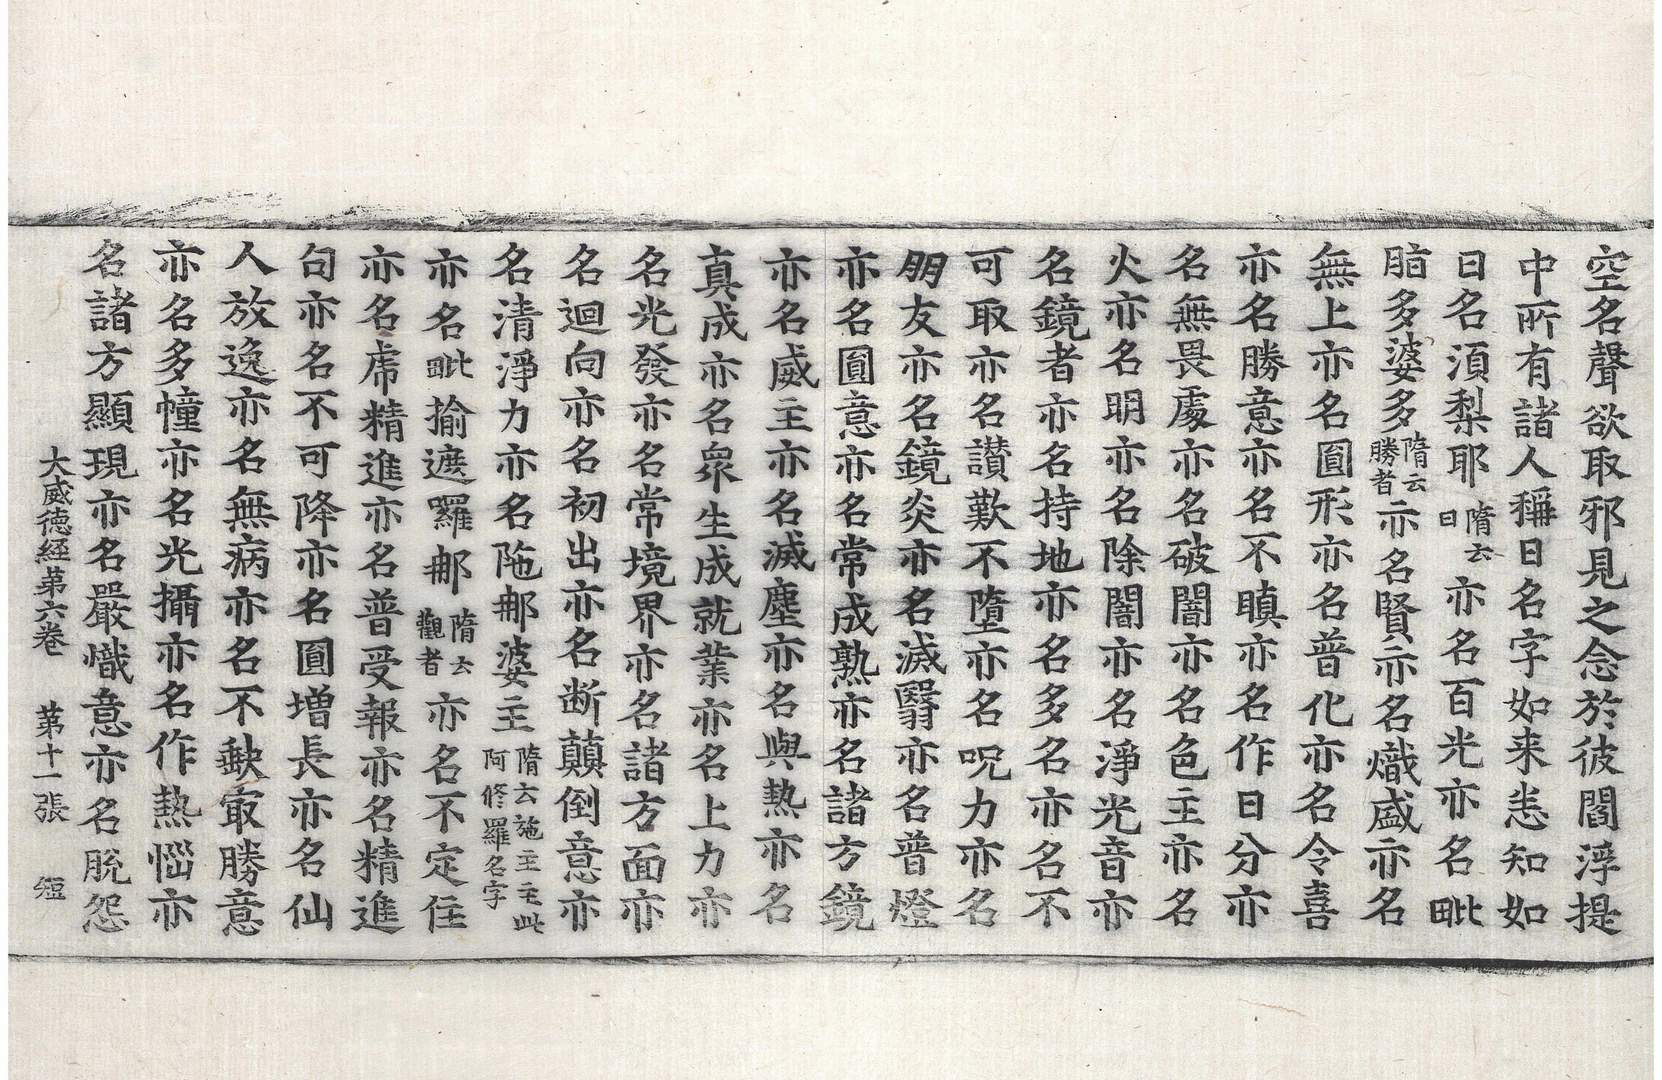 空名聲欲取邪見之念於彼閻浮提
中所有諸人稱日名字如来悉知如
日名須梨耶隋云日亦名百光亦名毗
脂多婆多隋云勝者亦名賢亦名熾盛亦名
無上亦名圎形亦名普化亦名令喜
亦名勝意亦名不瞋亦名作日分亦
名無畏處亦名破闇亦名色主亦名
火亦名明亦名除闇亦名淨光音亦
名鏡者亦名持地亦名多名亦名不
可取亦名讃歎不墮亦名呪力亦名
朋友亦名鏡炎亦名滅翳亦名普燈
亦名圎意亦名常成熟亦名諸方鏡
亦名威主亦名滅塵亦名與熱亦名
真成亦名衆生成就業亦名上力亦
名光發亦名常境界亦名諸方面亦
名迴向亦名初出亦名断顛倒意亦
名清淨力亦名陁那婆主隋云施主主此阿修羅名字
亦名毗揄遮囉那隋云觀者亦名不定住
亦名虎精進亦名普受報亦名精進
句亦名不可降亦名圎增長亦名仙
人放逸亦名無病亦名不缺㝡勝意
亦名多幢亦名光攝亦名作熱惱亦
名諸方顯現亦名嚴熾意亦名脫怨
大威德經第六卷 第十一張 短